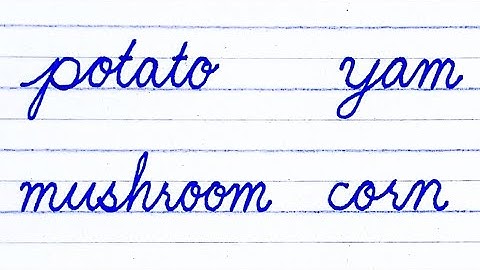 potato yam
mushroom corn